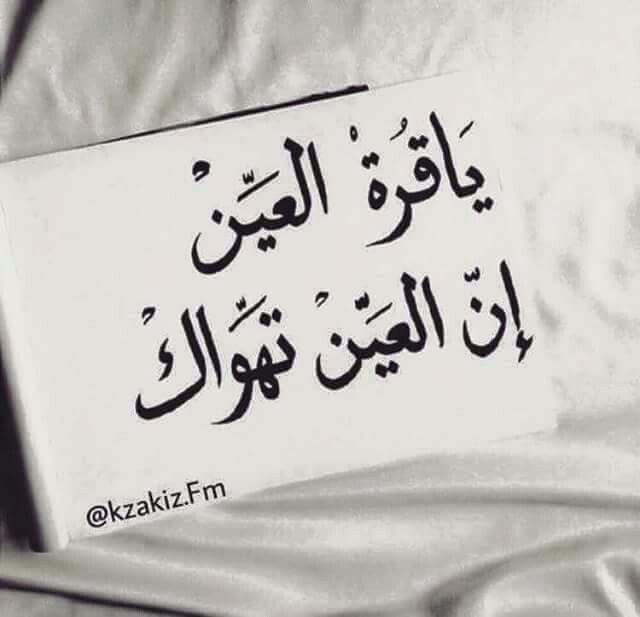 يَاقُرةْ العيَّنْ
إنّ العيَّنْ تهوَّاكْ
@kzakiz.Fm